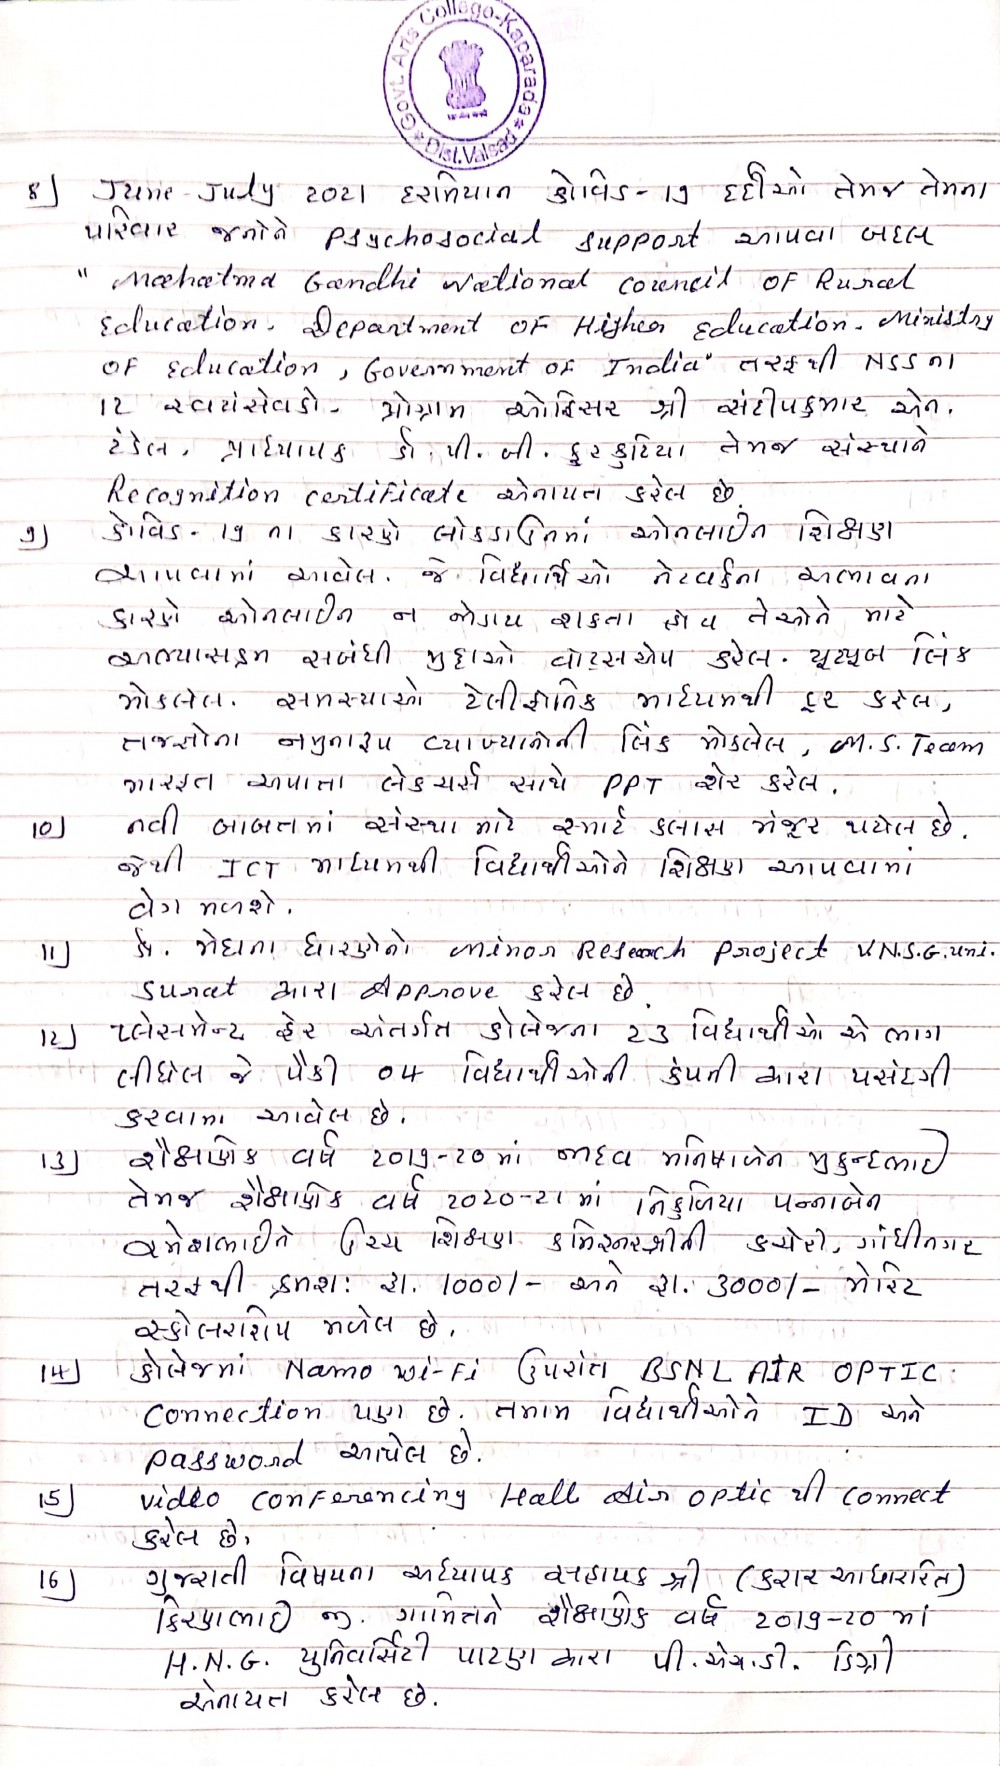 Govt. Arts College-Kaparada
* Dist.Valsad *
8] June-July 2021 દરમિયાન કોવિડ-19 દર્દીઓ તેમજ તેમના
પરિવાર જનોને Psychosocial support આપવા બદલ
" Mahatma Gandhi National Council OF Rural
Education. Department OF Higher Education. Ministry
OF Education, Government OF India" તરફથી NSS ના
12 સ્વયંસેવકો. પ્રોગ્રામ ઓફિસર શ્રી સંદીપકુમાર એન.
ટંડેલ. પ્રાધ્યાપક ડૉ. પી. બી. કુરકુટિયા તેમજ સંસ્થાને
Recognition certificate એનાયત કરેલ છે.
9] કોવિડ-19 ના કારણે લોકડાઉનમાં ઓનલાઈન શિક્ષણ
આપવામાં આવેલ. જે વિદ્યાર્થિઓ નેટવર્કના અભાવના
કારણે ઓનલાઈન ન જોડાય શકતા હોય તેઓને માટે
અભ્યાસક્રમ સબંધી મુદ્દાઓ વોટ્સએપ કરેલ. યૂટ્યૂબ લિંક
મોકલેલ. સમસ્યાઓ ટેલીફોનિક માધ્યમથી દૂર કરેલ,
તજજ્ઞોના નમુનારૂપ વ્યાખ્યાનોની લિંક મોકલેલ, M.S. Team
મારફત અપાતા લેકચર્સ સાથે PPT શેર કરેલ.
10] નવી બાબતમાં સંસ્થા માટે સ્માર્ટ ક્લાસ મંજૂર થયેલ છે.
જેથી ICT માધ્યમથી વિદ્યાર્થીઓને શિક્ષણ આપવામાં
વેગ મળશે.
11] ડૉ. મેઘના ધારણેનો Minor Research Project V.N.S.G.Uni.
Surat દ્વારા Approve કરેલ છે.
12] પ્લેસમેન્ટ ફેર અંતર્ગત કોલેજના 23 વિદ્યાર્થીઓ એ ભાગ
લીધેલ જે પૈકી 04 વિદ્યાર્થીઓની કંપની દ્વારા પસંદગી
કરવામાં આવેલ છે.
13] શૈક્ષણિક વર્ષ 2019-20 માં જાદવ મનિષાબેન મુકુન્દભાઈ
તેમજ શૈક્ષણિક વર્ષ 2020-21 માં નિકુળિયા પન્નાબેન
રમેશભાઈને ઉચ્ચ શિક્ષણ કમિશ્નરશ્રીની કચેરી, ગાંધીનગર
તરફથી ક્રમશ: રૂા. 1000/- અને રૂા. 3000/- મેરિટ
સ્કોલરશિપ મળેલ છે.
14] કોલેજમાં Namo Wi-Fi ઉપરાંત BSNL AIR OPTIC
Connection પણ છે. તમામ વિદ્યાર્થીઓને ID અને
Password આપેલ છે.
15] Video Conferencing Hall Air optic થી Connect
કરેલ છે.
16] ગુજરાતી વિષયના અધ્યાપક સહાયક શ્રી (કરાર આધારરિત)
કિરણભાઈ જી. ગામિતને શૈક્ષણિક વર્ષ 2019-20 માં
H.N.G. યુનિવર્સિટી પાટણ દ્વારા પી.એચ.ડી. ડિગ્રી
એનાયત કરેલ છે.